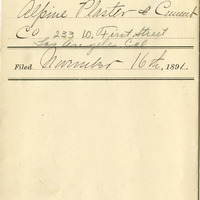 Alpine Plaster & Cement
Co 233 W. First Street
Los Angeles Cal
Filed November 16th, 1891.